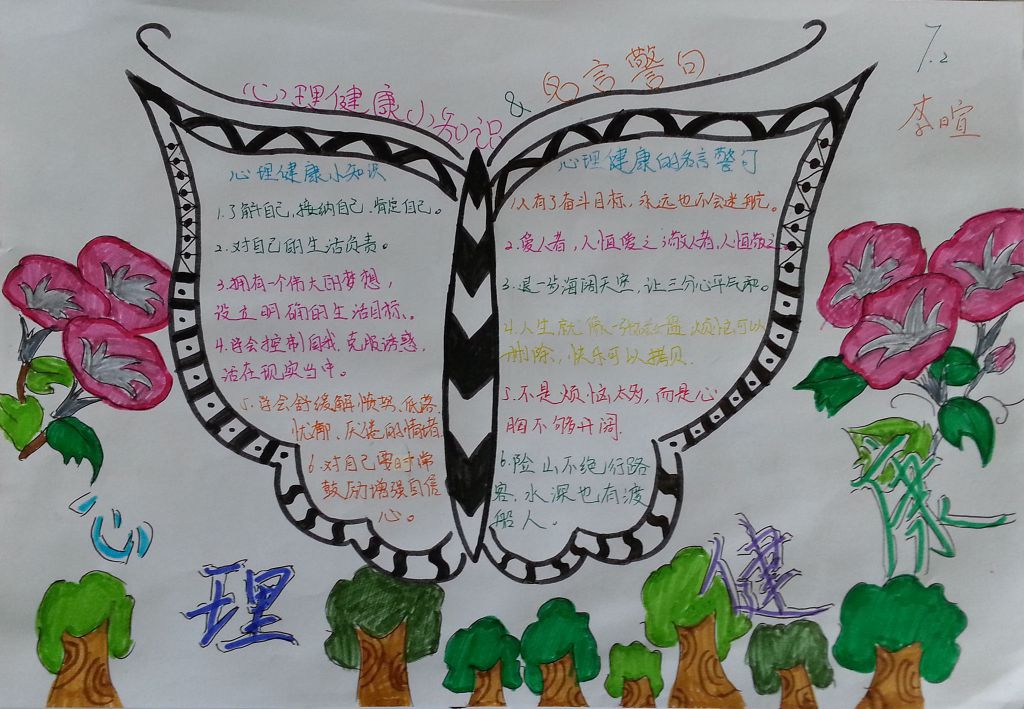 心理健康小知识 & 名言警句
7.2
李暄
心理健康小知识
1.了解自己,接纳自己.肯定自己。
2.对自己的生活负责。
3.拥有一个伟大的梦想,
设立明确的生活目标。
4.学会控制自我,克服诱惑,
活在现实当中。
5.学会舒缓解愤怒、低落、
忧郁、厌倦的情绪.
6.对自己要时常
鼓励增强自信
心。
心理健康的名言警句
1.人有了奋斗目标,永远也不会迷航。
2.爱人者,人恒爱之;敬人者,人恒敬之
3.退一步海阔天空,让三分心平气和。
4.人生就像一张软盘,烦恼可以
删除,快乐可以拷贝.
5.不是烦恼太多,而是心
胸不够开阔.
6.险山不绝行路
客,水深也有渡
船人.
心
理
健
康